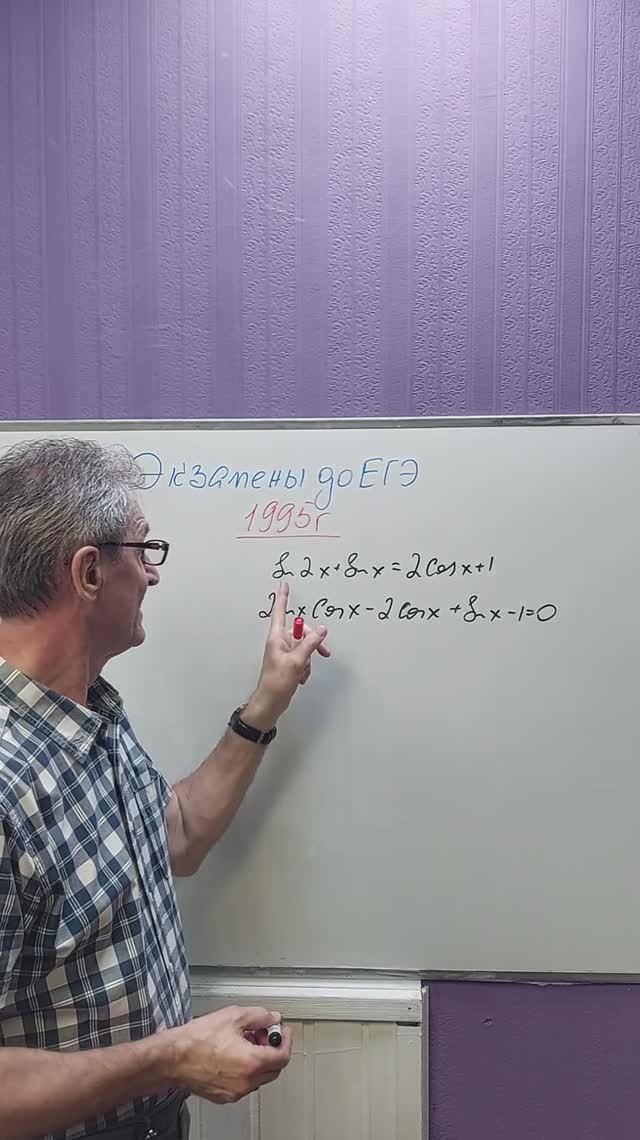 Экзамены до ЕГЭ
1995г
sin 2x + sin x = 2cos x + 1
2sin x cos x - 2cos x + sin x - 1 = 0